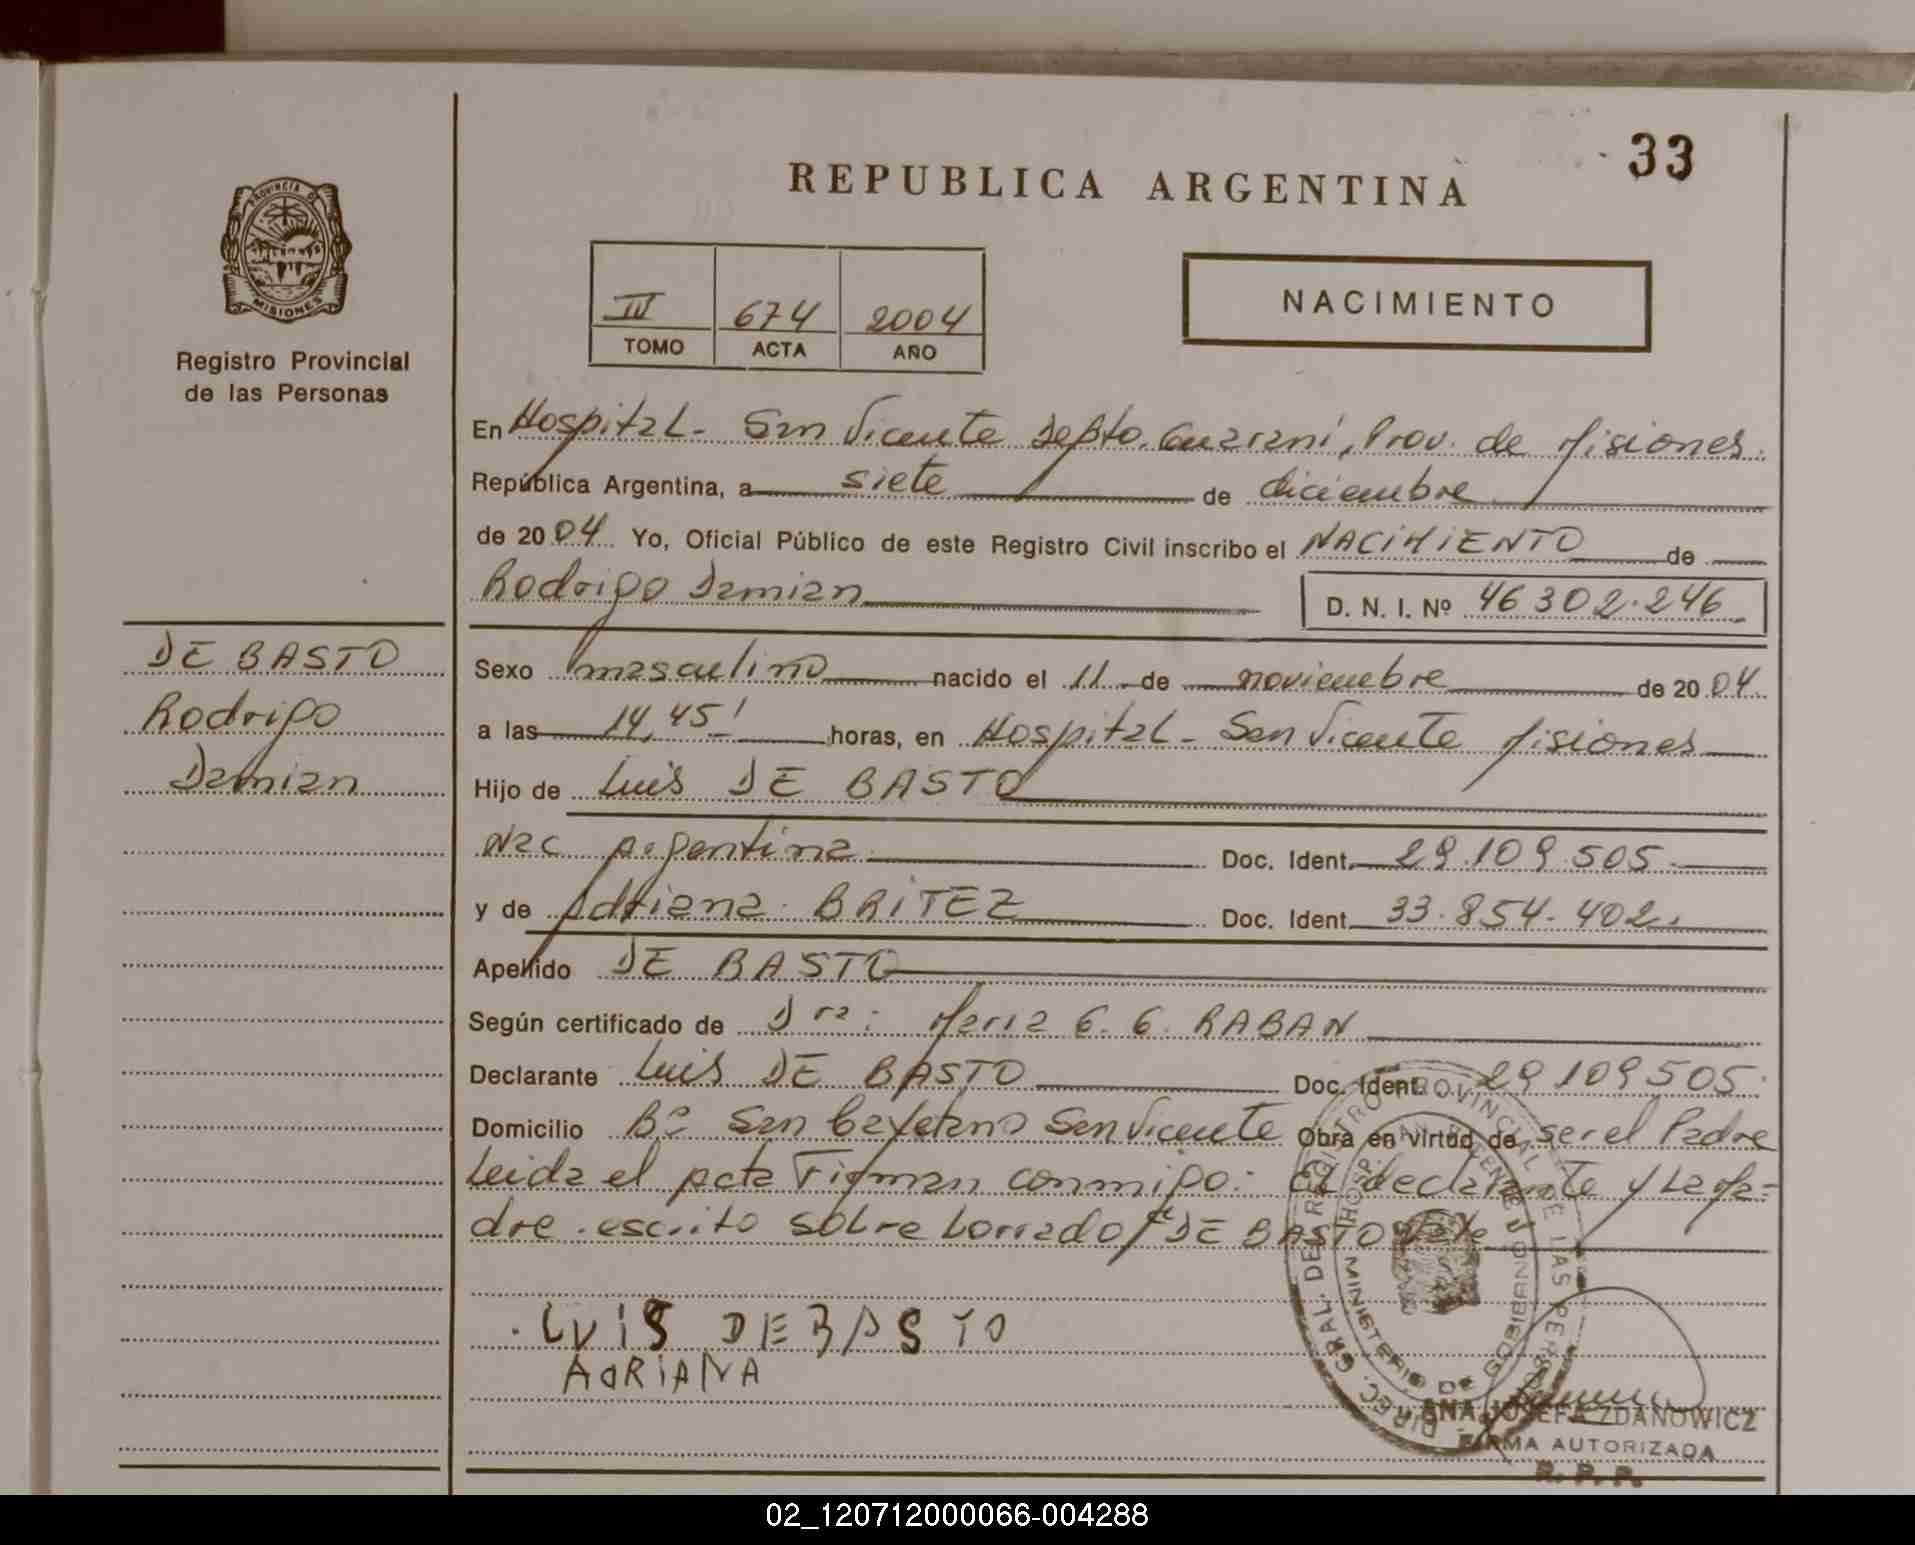 33
REPUBLICA ARGENTINA
PROVINCIA DE
MISIONES
Registro Provincial
de las Personas
IV 674 2004
TOMO ACTA AÑO
NACIMIENTO
En Hospital - San Vicente Depto. Guarani, Prov. de Misiones.
República Argentina, a siete de diciembre
de 2004 Yo, Oficial Público de este Registro Civil inscribo el NACIMIENTO de
Rodrigo Damian
D. N. I. Nº 46302.246
DE BASTO
Rodrigo
Damian
Sexo masculino nacido el 11 de noviembre de 2004
a las 14,45' horas, en Hospital - San Vicente Misiones
Hijo de Luis DE BASTO
Nac Argentina Doc. Ident. 29.109.505.
y de Adriana BRITEZ Doc. Ident. 33.854.402.
Apellido DE BASTO
Según certificado de Dra: Maria G. G. RABAN
Declarante Luis DE BASTO Doc. Ident. 29109505.
Domicilio Bº San Cayetano San Vicente Obra en virtud de ser el Padre
Leida el acta Firman conmigo: El declarante y La Ma=
dre. escrito sobre borrado "DE BASTO" Vale
LUIS DEBASTO
ADRIANA
DIREC. GRAL. DE REGISTRO PROVINCIAL DE LAS PERSONAS
HOSP. SAN VICENTE
MINISTERIO DE GOBIERNO
ANA JOSEFA ZDANOWICZ
FIRMA AUTORIZADA
R. P. P.
02_120712000066-004288